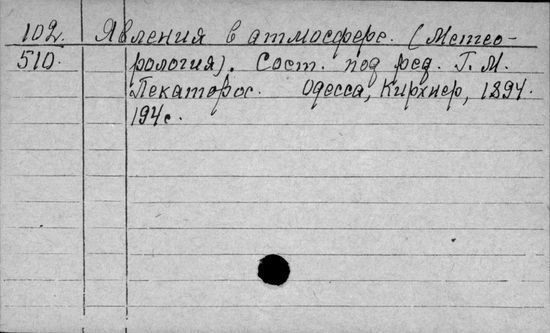 102. Явления в атмосфере. (Метео-
510. рология). Сост. под ред. Г. М.
Пекаторос. Одесса, Кирхнер, 1894.
194 с.